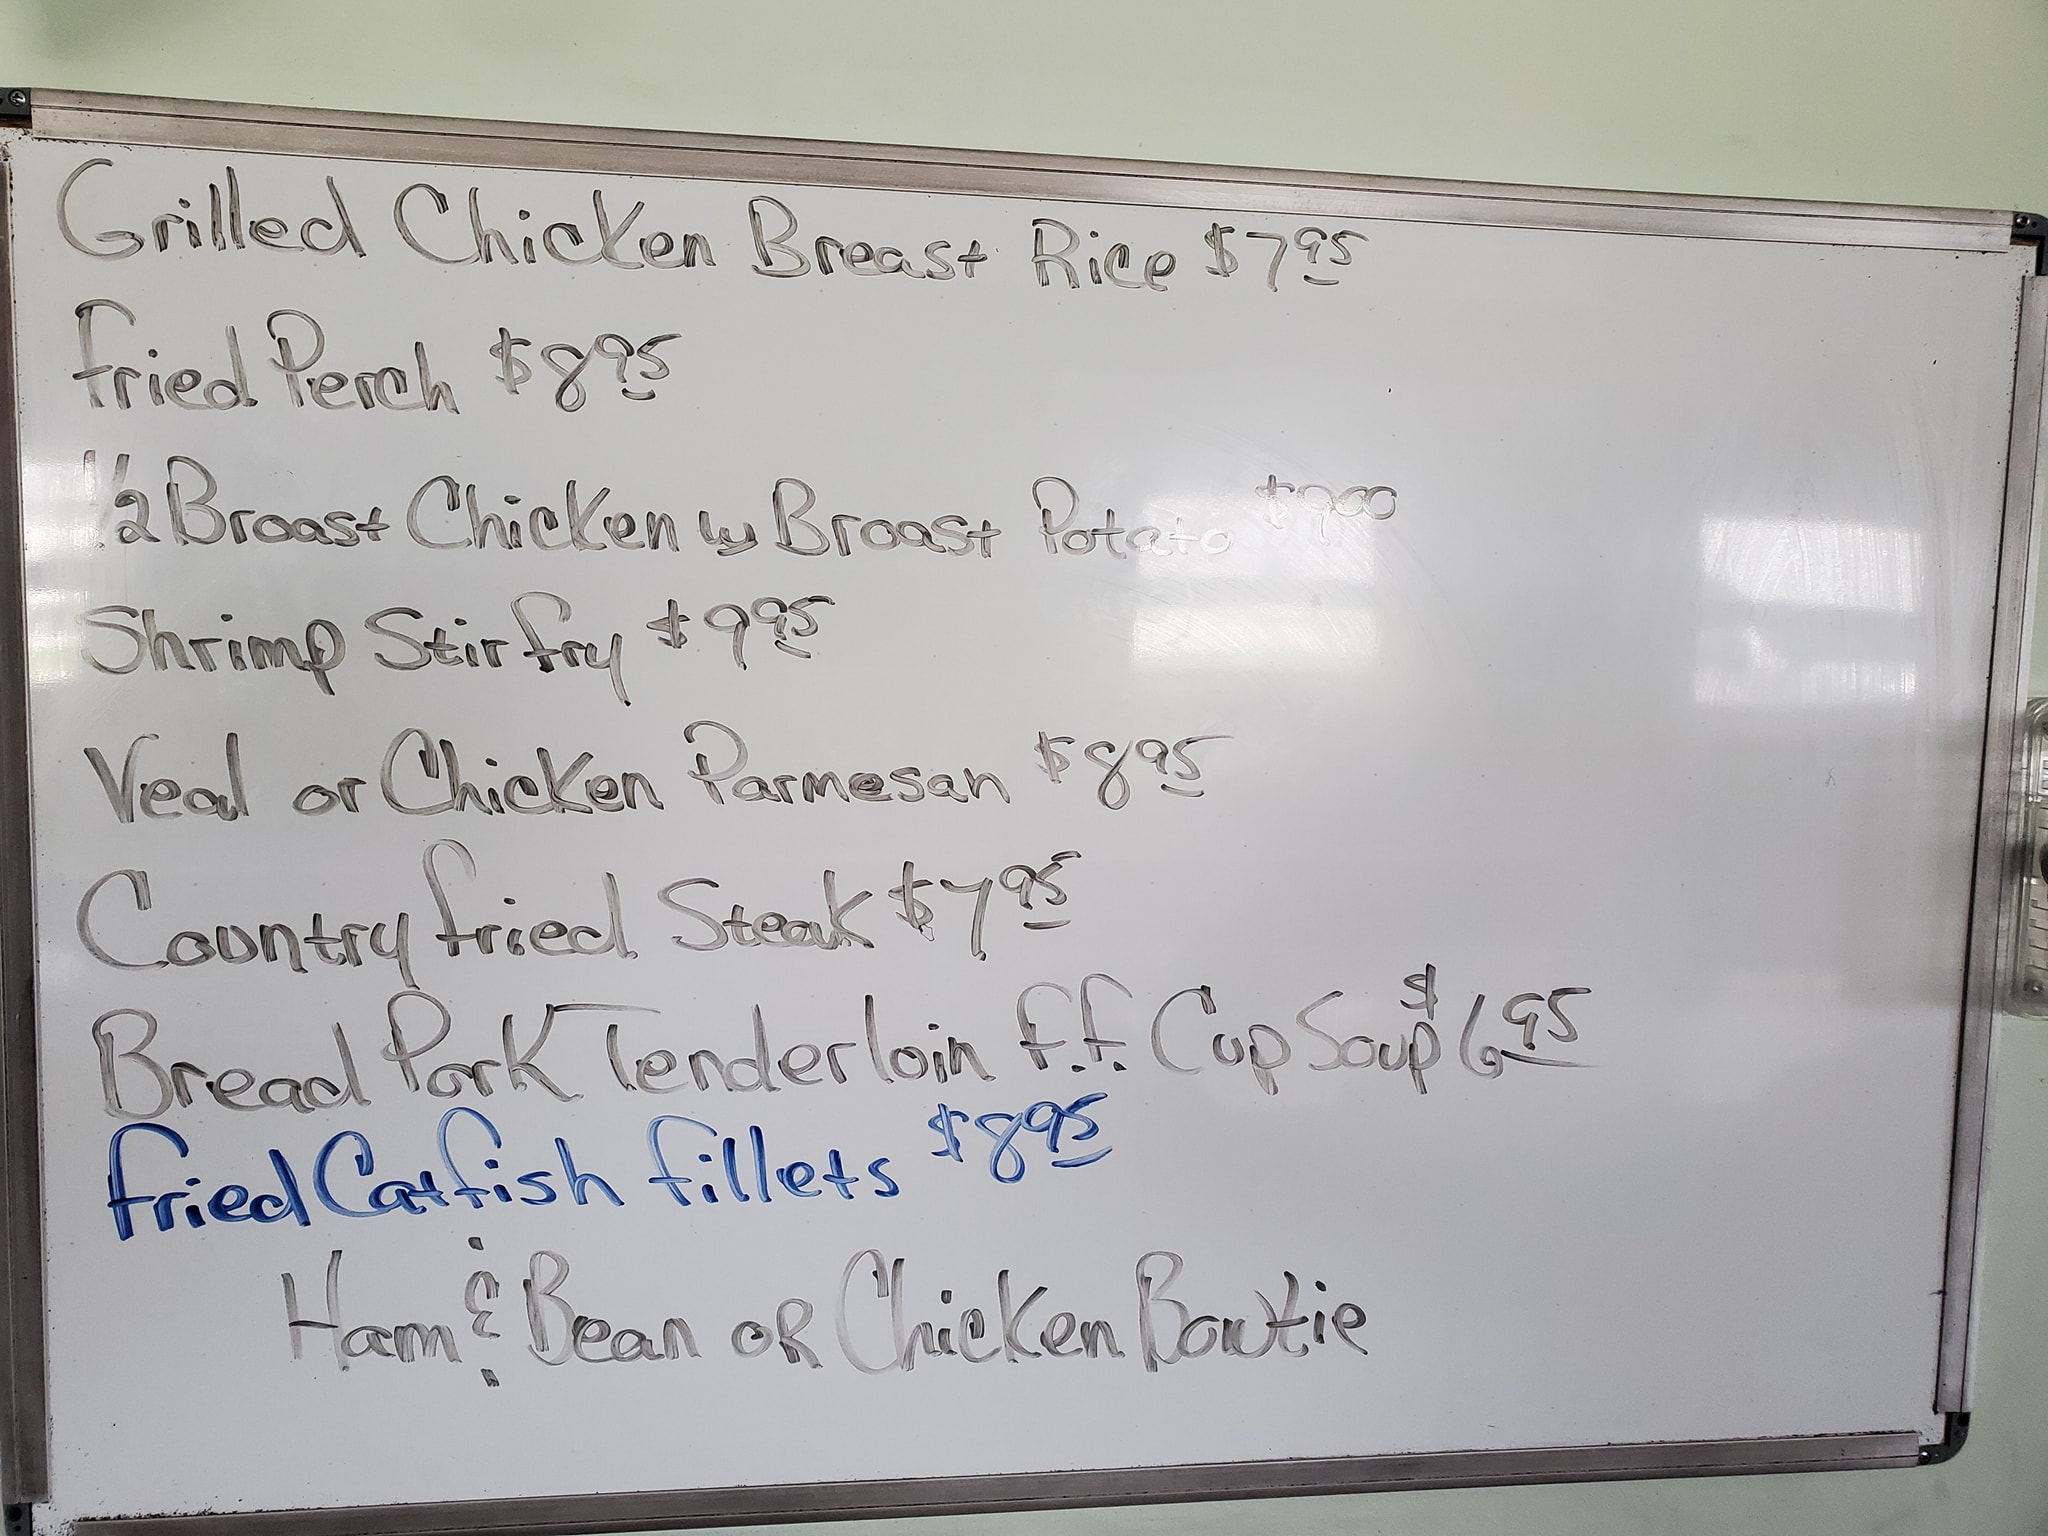 Grilled Chicken Breast Rice $7.95
Fried Perch $8.95
1/2 Broast Chicken w/ Broast Potato $9.00
Shrimp Stir fry $9.95
Veal or Chicken Parmesan $8.95
Country fried Steak $7.95
Bread Pork Tenderloin f.f. Cup Soup $6.95
fried Catfish fillets $8.95
Ham & Bean OR Chicken Bowtie